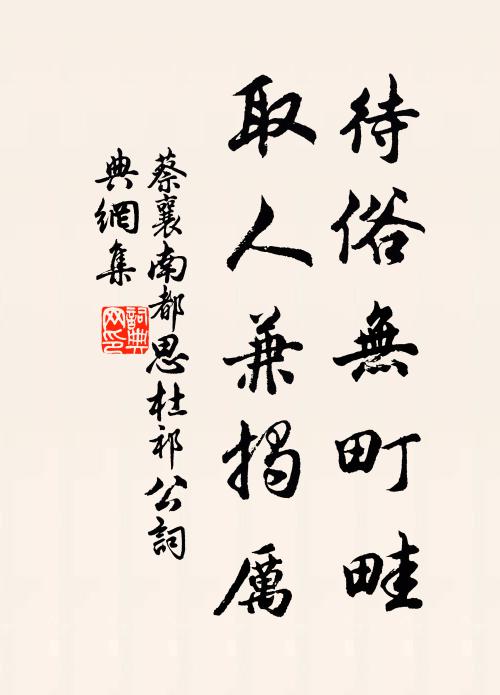 待俗無町畦
取人兼揭厲
蔡襄南都思杜祁公詞
典網集
詞典网印